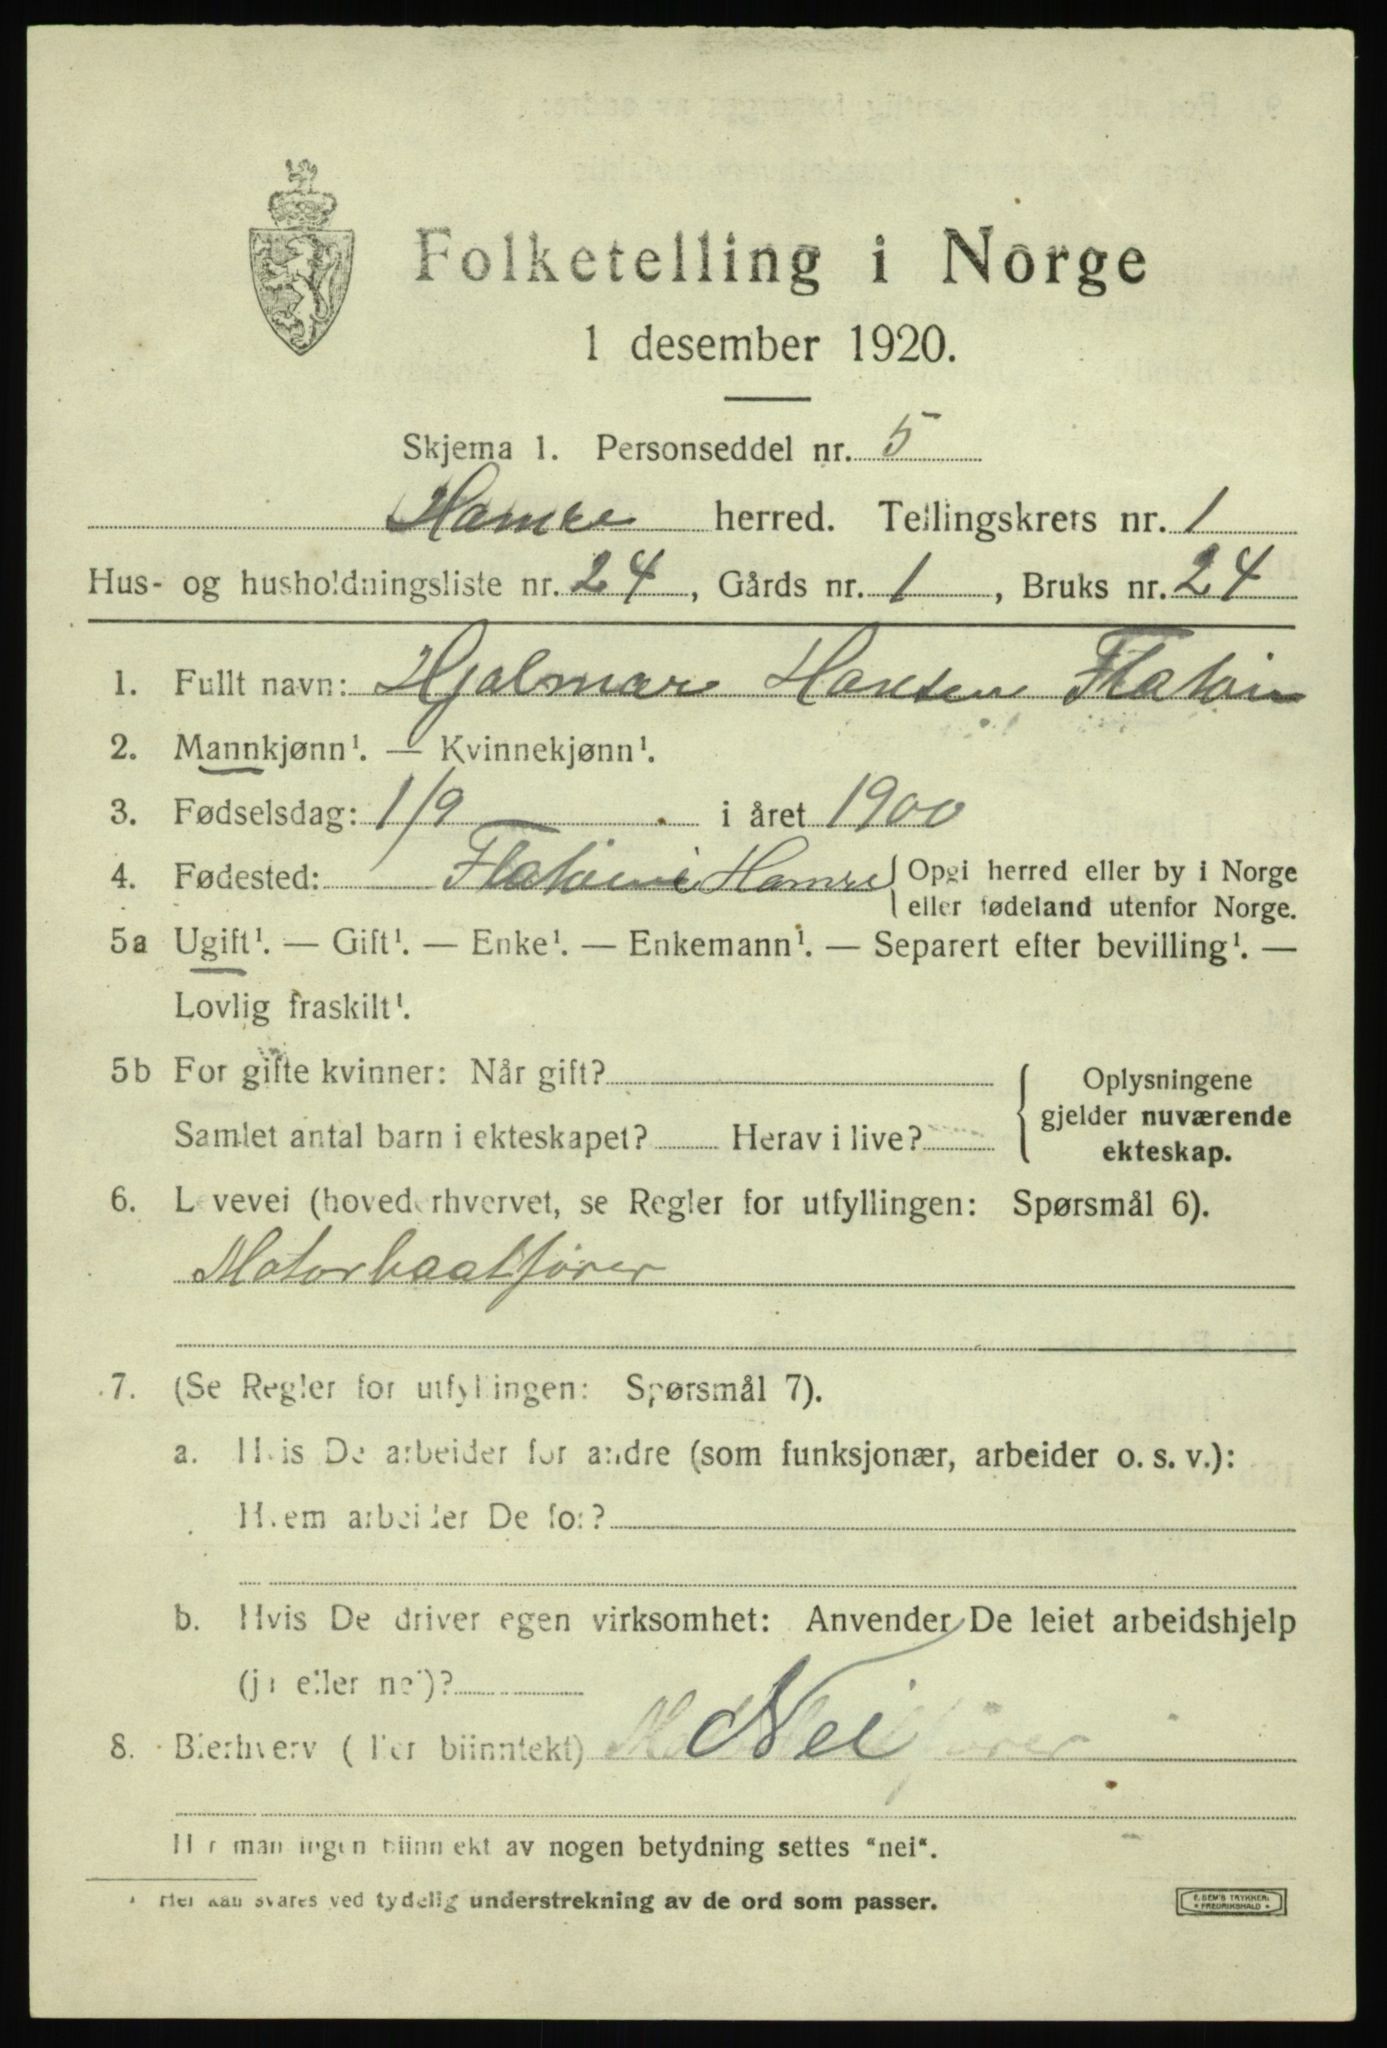 Folketelling i Norge
1 desember 1920.
Skjema 1. Personseddel nr. 5
Hamre herred. Tellingskrets nr. 1
Hus- og husholdningsliste nr. 24, Gårds nr. 1, Bruks nr. 24
1. Fullt navn: Hjalmar Hansen Flatøin
2. Mannkjønn¹. — Kvinnekjønn¹.
3. Fødselsdag: 1/9 i året 1900
4. Fødested: Hamre { Opgi herred eller by i Norge
eller fødeland utenfor Norge.
5a Ugift¹. — Gift¹. — Enke¹. — Enkemann¹. — Separert efter bevilling¹. —
Lovlig fraskilt¹.
5b For gifte kvinner: Når gift?
Samlet antal barn i ekteskapet? Herav i live?
Oplysningene
gjelder nuværende
ekteskap.
6. Levevei (hovederhvervet, se Regler for utfyllingen: Spørsmål 6).
Motorbaatfører
7. (Se Regler for utfyllingen: Spørsmål 7).
a. Hvis De arbeider for andre (som funksjonær, arbeider o. s. v.):
Hvem arbeider De for?
b. Hvis De driver egen virksomhet: Anvender De leiet arbeidshjelp
(ja eller nei)?
8. Bierhverv (eller biinntekt) Nei
Har man ingen biinntekt av nogen betydning settes "nei".
¹ Her kan svares ved tydelig understrekning av de ord som passer.
E. SEM'S TRYKKERI
FREDRIKSHALD